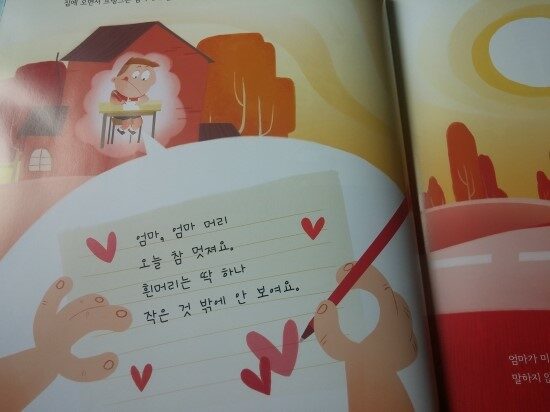 엄마, 엄마 머리
오늘 참 멋져요.
흰머리는 딱 하나
작은 것 밖에 안 보여요.
엄마가 미
말하지 않